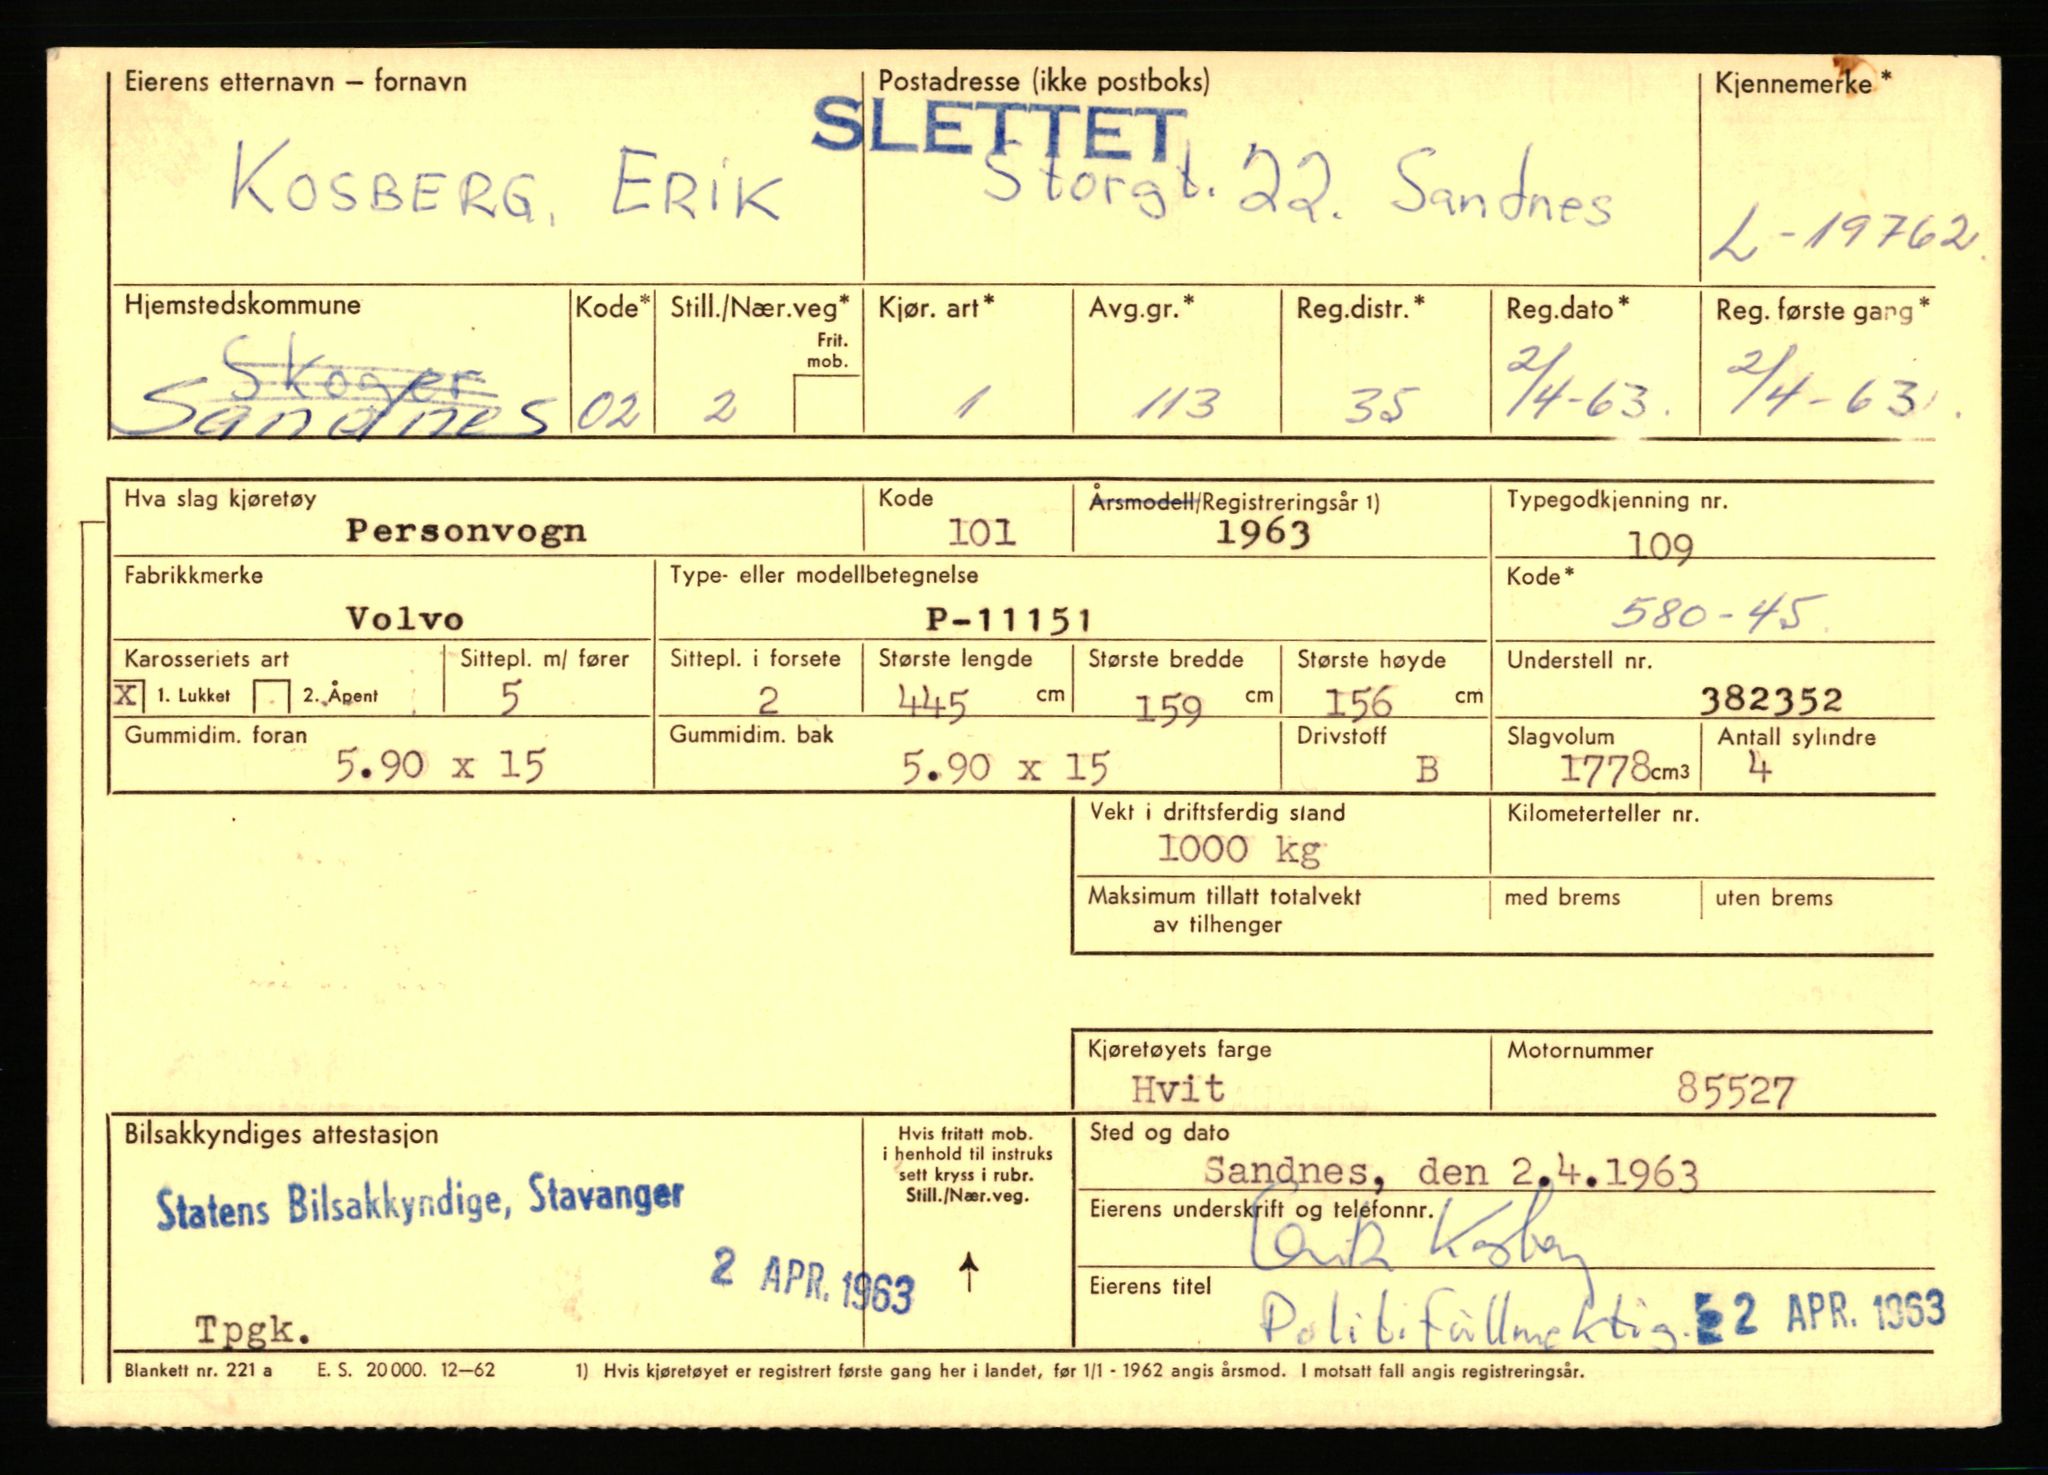 Eierens etternavn – fornavn
Postadresse (ikke postboks)
Kjennemerke*
SLETTET
KOSBERG, ERIK
Storgt. 22. Sandnes
L-19762.
Hjemstedskommune
Kode*
Still./Nær.veg*
Kjør. art*
Avg.gr.*
Reg.distr.*
Reg.dato*
Reg. første gang*
Frit. mob.
Skoger
Sandnes
02
2
1
113
35
2/4-63.
2/4-63.
Hva slag kjøretøy
Kode
Årsmodell/Registreringsår 1)
Typegodkjenning nr.
Personvogn
101
1963
109
Fabrikkmerke
Type- eller modellbetegnelse
Kode*
Volvo
P-11151
580-45
Karosseriets art
Sittepl. m/ fører
Sittepl. i forsete
Største lengde
Største bredde
Største høyde
Understell nr.
X 1. Lukket 2. Åpent
5
2
445 cm
159 cm
156 cm
382352
Gummidim. foran
Gummidim. bak
Drivstoff
Slagvolum
Antall sylindre
5.90 x 15
5.90 x 15
B
1778 cm3
4
Vekt i driftsferdig stand
Kilometerteller nr.
1000 kg
Maksimum tillatt totalvekt
av tilhenger
med brems
uten brems
Kjøretøyets farge
Motornummer
Hvit
85527
Bilsakkyndiges attestasjon
Hvis fritatt mob.
i henhold til instruks
sett kryss i rubr.
Still./Nær.veg.
Sted og dato
Sandnes, den 2.4.1963
Statens Bilsakkyndige, Stavanger
Eierens underskrift og telefonnr.
Erik Kosberg
2 APR. 1963
Eierens titel
Politifullmektig.
2 APR. 1963
Tpgk.
Blankett nr. 221 a E. S. 20 000. 12–62 1) Hvis kjøretøyet er registrert første gang her i landet, før 1/1 - 1962 angis årsmod. I motsatt fall angis registreringsår.